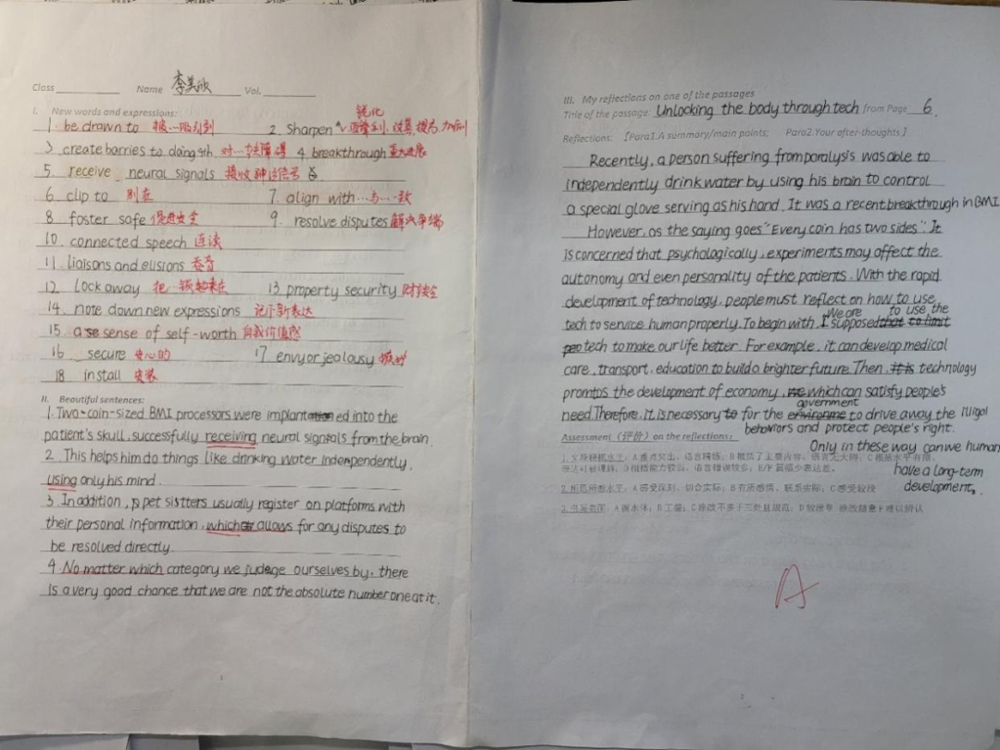 Class Name 李美欣 Vol.
I. New words and expressions:
1. be drawn to 被…吸引到
锐化
2. sharpen v
3. create barries to doing sth 对…
4. breakthrough 重大进展
5. receive neural signals 接收神经信号
6. clip to 别在
7. align with …与…一致
8. foster safe 促进安全
9. resolve disputes 解决争端
10. connected speech 连读
11. liaisons and elisions
12. lock away 把…锁起来
13. property security 财产安全
14. note down new expressions 记下新表达
15. a sense of self-worth 自我价值感
16. secure 安心的
17. envy or jealousy 嫉妒
18. install 安装
II. Beautiful sentences:
1. Two-coin-sized BMI processors were implanted into the
patient's skull, successfully receiving neural signals from the brain.
2. This helps him do things like drinking water independently,
using only his mind.
3. In addition, pet sistters usually register on platforms with
their personal information, which allows for any disputes to
be resolved directly.
4. No matter which category we judege ourselves by, there
is a very good chance that we are not the absolute number one at it.
III. My reflections on one of the passages
Title of the passage: Unlocking the body through tech from Page 6.
Reflections: [Para1.A summary/main points; Para2.Your after-thoughts]
Recently, a person suffering from paralysis was able to
independently drink water by using his brain to control
a special glove serving as his hand. It was a recent breakthrough in BMI
However, as the saying goes "Every coin has two sides". It
is concerned that psychologically, experiments may affect the
autonomy and even personality of the patients. With the rapid
development of technology, people must reflect on how to use
tech to service human properly. To begin with, We are supposed to use the
tech to make our life better. For example, it can develop medical
care, transport, education to build a brighter future. Then, technology
promtes the development of economy, which can satisfy people's
need. Therefore, It is necessary for the government to drive away the illigol
behaviors and protect people's right.
Only in these way can we human
have a long-term
development.
Assessment (评价) on the reflections:
A